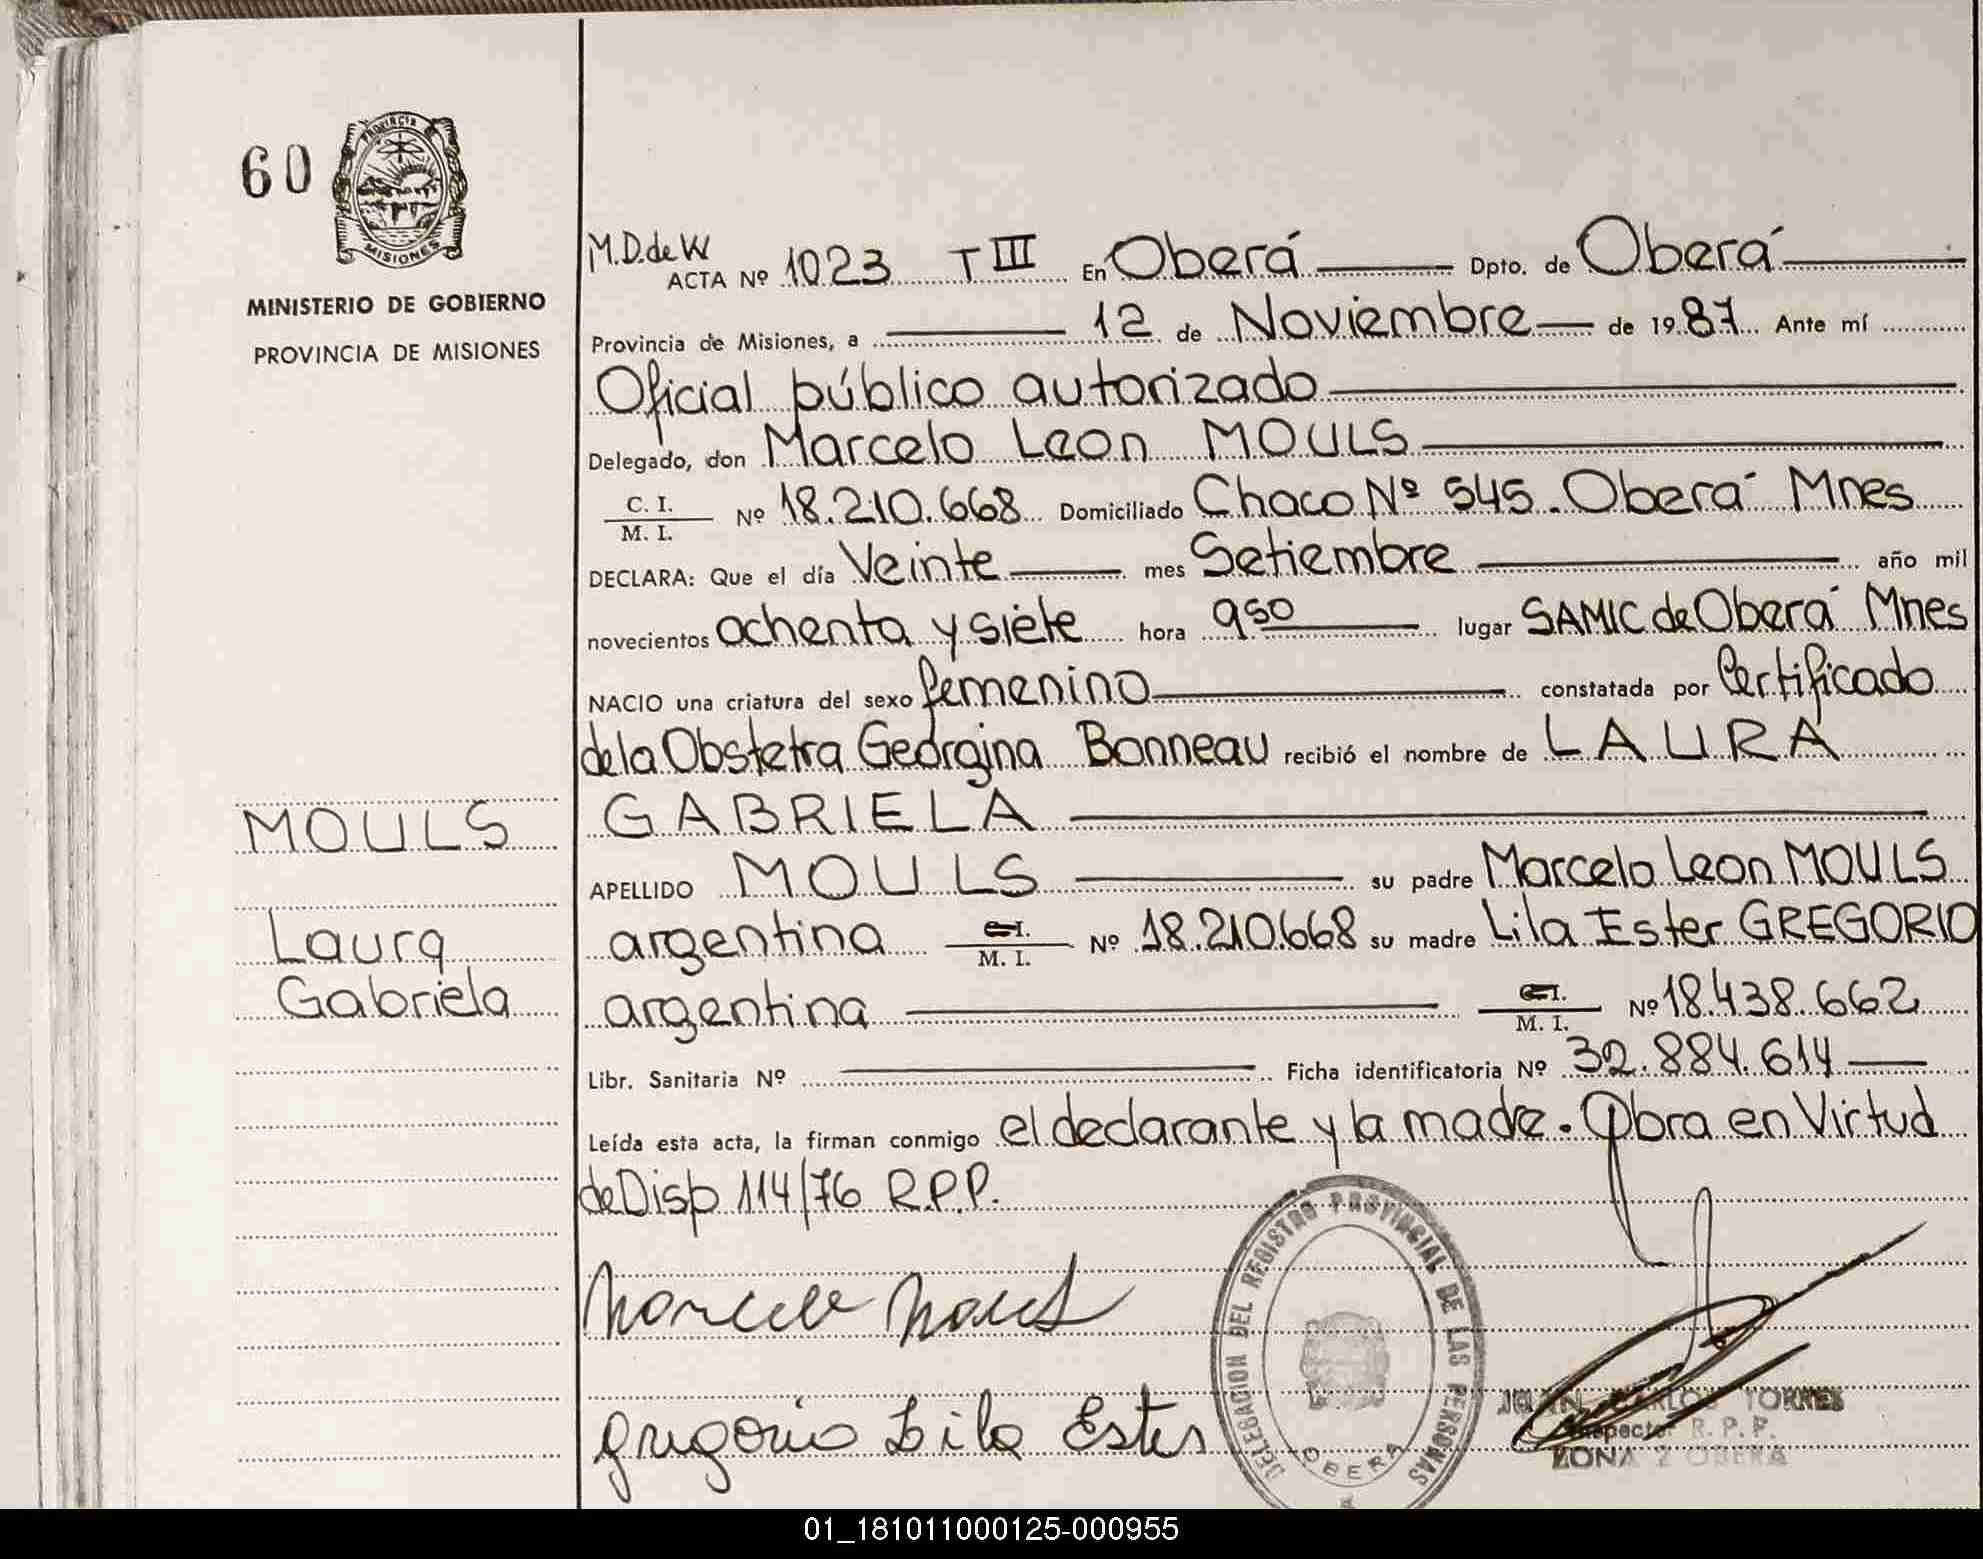 60
PROVINCIA
MISIONES
MINISTERIO DE GOBIERNO
PROVINCIA DE MISIONES
MOULS
Laura
Gabriela
M.D.de W
ACTA Nº 1023 T III En Oberá Dpto. de Oberá
Provincia de Misiones, a 12 de Noviembre de 1987 Ante mí
Oficial público autorizado
Delegado, don Marcelo Leon MOULS
C. I.
M. I. Nº 18.210.668 Domiciliado Chaco Nº 545. Oberá Mnes
DECLARA: Que el día Veinte mes Setiembre año mil
novecientos ochenta y siete hora 9 50 lugar SAMIC de Oberá Mnes
NACIO una criatura del sexo femenino constatada por Certificado
de la Obstetra Georgina Bonneau recibió el nombre de LAURA
GABRIELA
APELLIDO MOULS su padre Marcelo Leon MOULS
argentina C.I. M. I. Nº 18.210.668 su madre Lila Ester GREGORIO
argentina C.I. M. I. Nº 18.438.662
Libr. Sanitaria Nº Ficha identificatoria Nº 32.884.614
Leída esta acta, la firman conmigo el declarante y la madre. Obra en Virtud
de Disp 114/76 R.P.P.
Marcelo Mouls
DELEGACION DEL REGISTRO PROVINCIAL DE LAS PERSONAS
OBERA
gregorio Lila Ester
JUAN CARLOS TORRES
Inspector R. P. P.
ZONA 2 OBERA
01_181011000125-000955